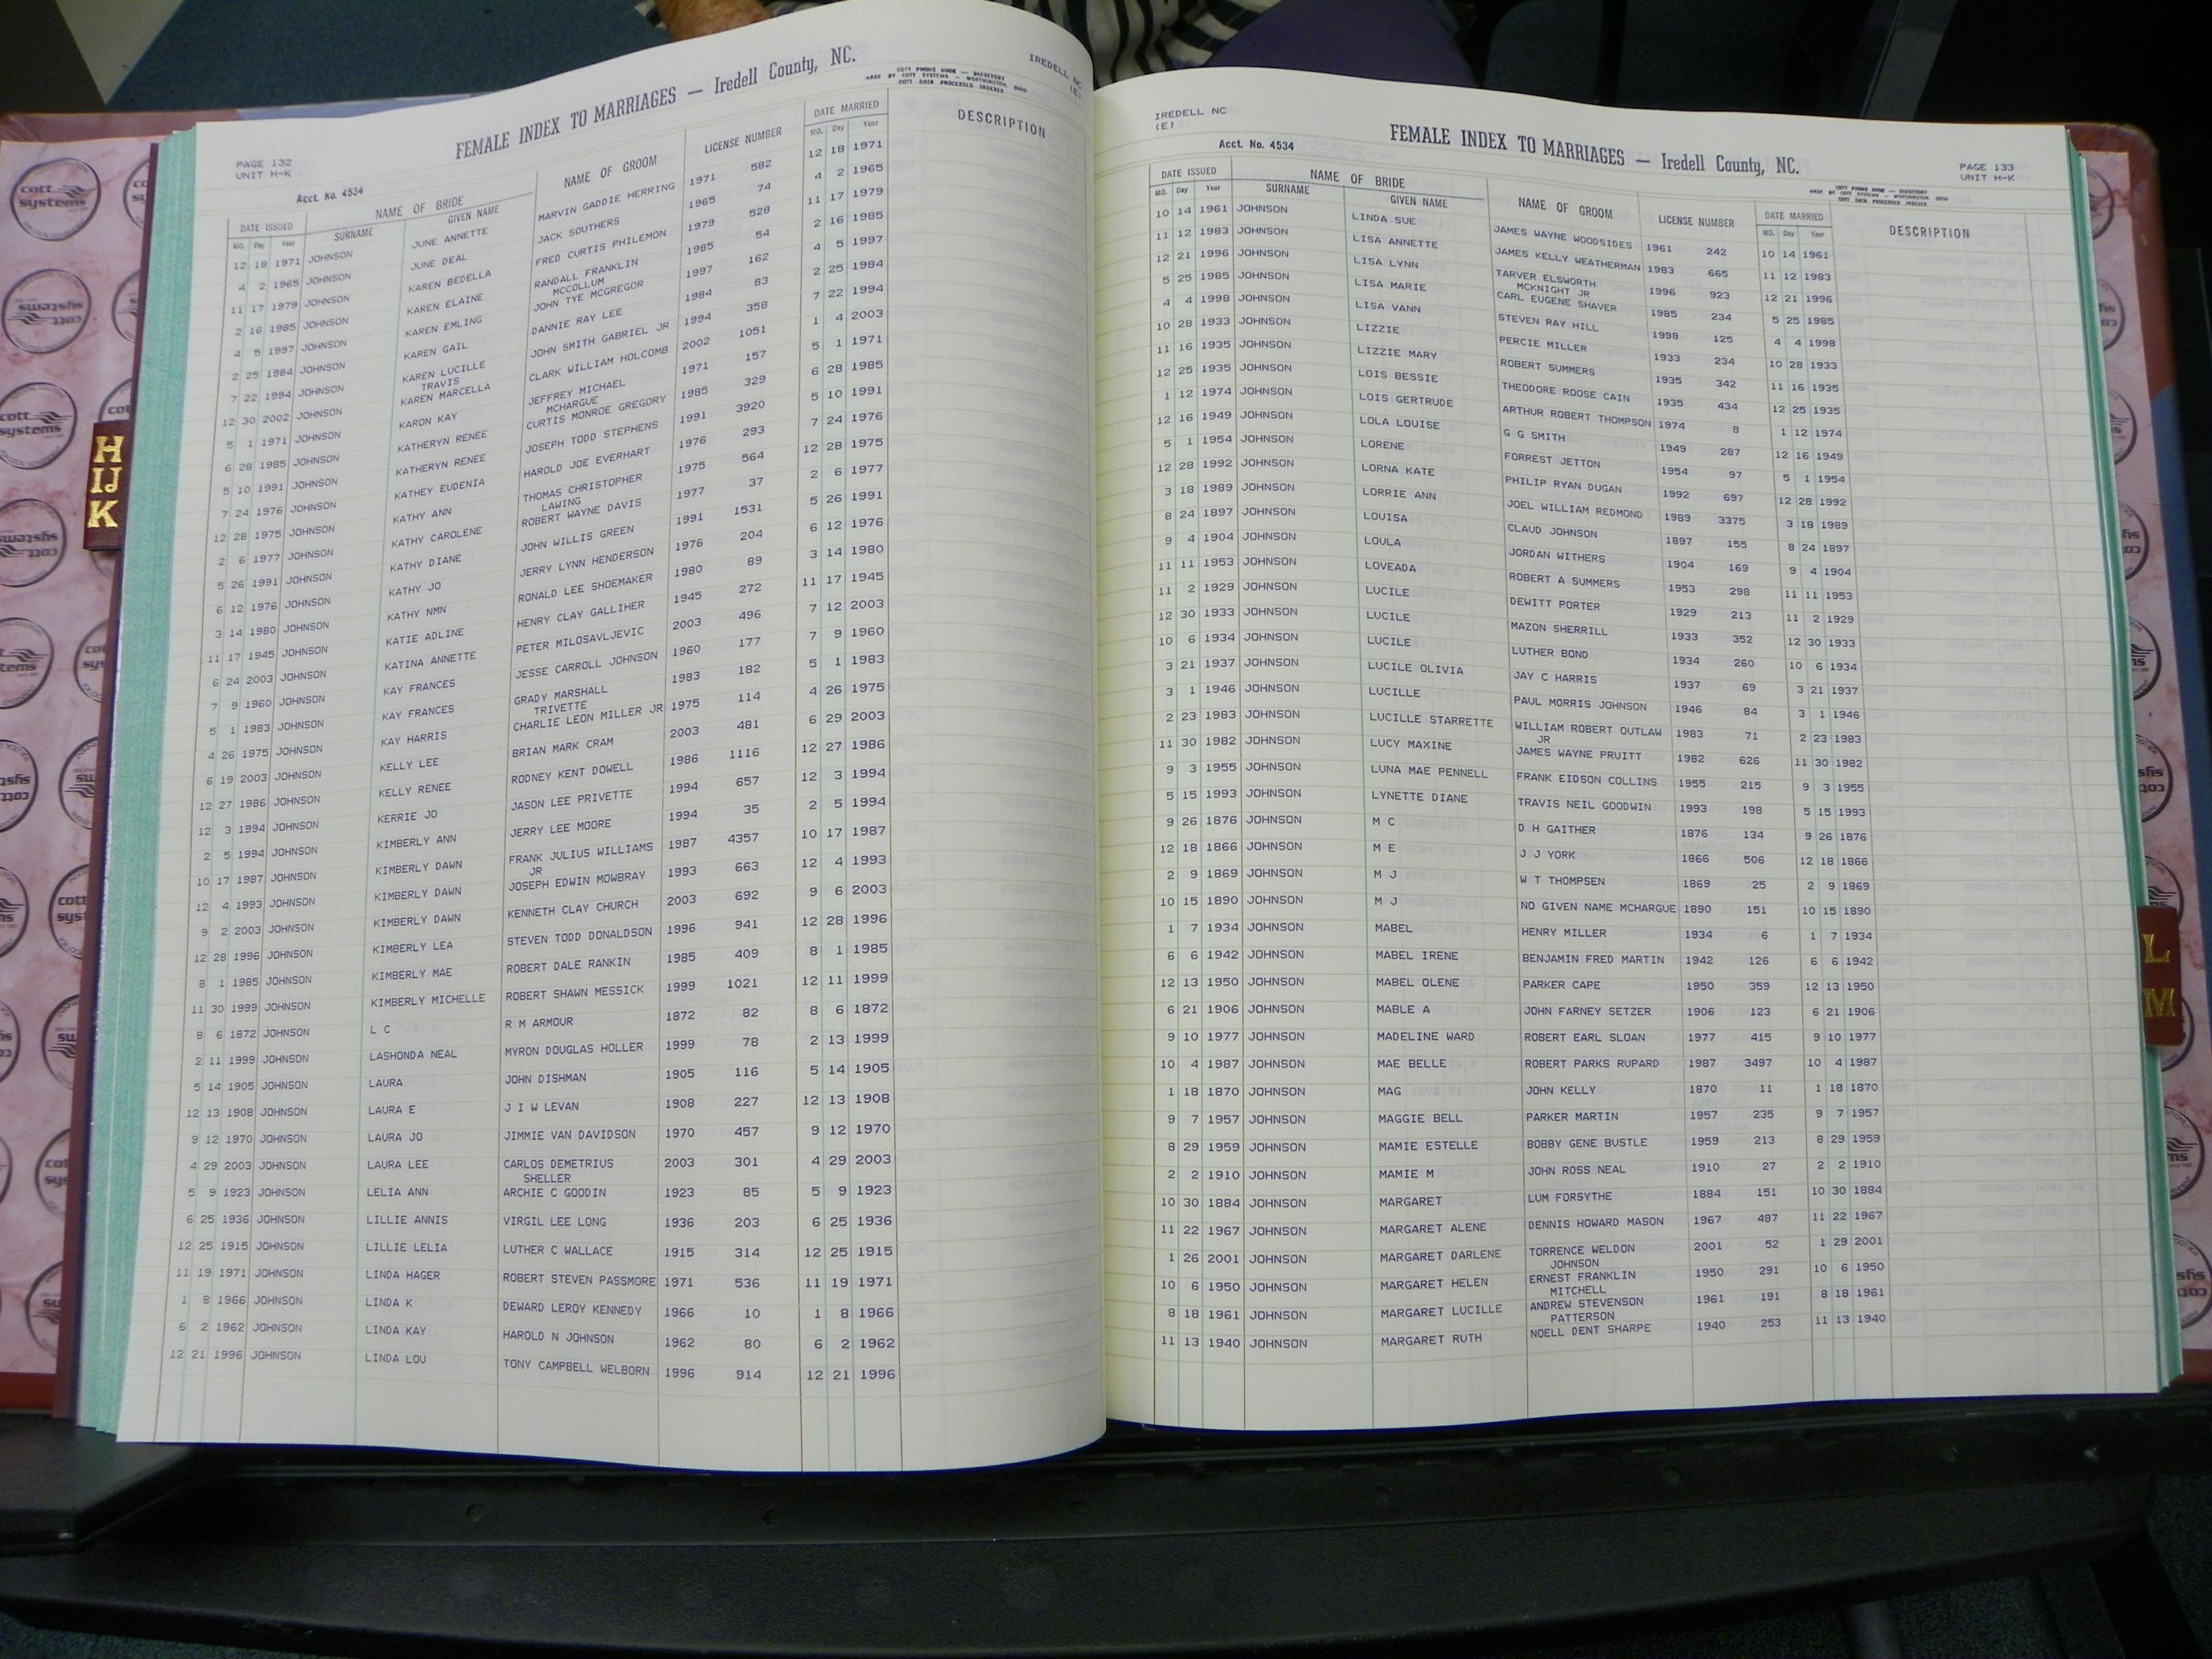 PAGE 132
UNIT H-K
FEMALE INDEX TO MARRIAGES — Iredell County, NC.
COTT PHONE BOOK — DIRECTORY
MADE BY COTT SYSTEMS — WORTHINGTON, OHIO
COTT DATA PROCESSED INDEXES
IREDELL NC
(E)
Acct. No. 4534
DATE ISSUED NAME OF BRIDE NAME OF GROOM LICENSE NUMBER DATE MARRIED DESCRIPTION
MO. Day Year SURNAME GIVEN NAME MO. Day Year
12 18 1971 JOHNSON JUNE ANNETTE MARVIN GADDIE HERRING 1971 582 12 18 1971
4 2 1965 JOHNSON JUNE DEAL JACK SOUTHERS 1965 74 4 2 1965
11 17 1979 JOHNSON KAREN BEDELLA FRED CURTIS PHILEMON 1979 528 11 17 1979
2 16 1985 JOHNSON KAREN ELAINE RANDALL FRANKLIN 1985 54 2 16 1985
MCCOLLUM
4 5 1997 JOHNSON KAREN EMLING JOHN TYE MCGREGOR 1997 162 4 5 1997
2 25 1984 JOHNSON KAREN GAIL DANNIE RAY LEE 1984 83 2 25 1984
7 22 1994 JOHNSON KAREN LUCILLE JOHN SMITH GABRIEL JR 1994 358 7 22 1994
TRAVIS
12 30 2002 JOHNSON KAREN MARCELLA CLARK WILLIAM HOLCOMB 2002 1051 1 4 2003
5 1 1971 JOHNSON KARON KAY JEFFREY MICHAEL 1971 157 5 1 1971
MCHARGUE
6 28 1985 JOHNSON KATHERYN RENEE CURTIS MONROE GREGORY 1985 329 6 28 1985
5 10 1991 JOHNSON KATHERYN RENEE JOSEPH TODD STEPHENS 1991 3920 5 10 1991
7 24 1976 JOHNSON KATHEY EUDENIA HAROLD JOE EVERHART 1976 293 7 24 1976
12 28 1975 JOHNSON KATHY ANN THOMAS CHRISTOPHER 1975 564 12 28 1975
LAWING
2 6 1977 JOHNSON KATHY CAROLENE ROBERT WAYNE DAVIS 1977 37 2 6 1977
5 26 1991 JOHNSON KATHY DIANE JOHN WILLIS GREEN 1991 1531 5 26 1991
6 12 1976 JOHNSON KATHY JO JERRY LYNN HENDERSON 1976 204 6 12 1976
3 14 1980 JOHNSON KATHY NMN RONALD LEE SHOEMAKER 1980 89 3 14 1980
11 17 1945 JOHNSON KATIE ADLINE HENRY CLAY GALLIHER 1945 272 11 17 1945
6 24 2003 JOHNSON KATINA ANNETTE PETER MILOSAVLJEVIC 2003 496 7 12 2003
7 9 1960 JOHNSON KAY FRANCES JESSE CARROLL JOHNSON 1960 177 7 9 1960
5 1 1983 JOHNSON KAY FRANCES GRADY MARSHALL 1983 182 5 1 1983
TRIVETTE
4 26 1975 JOHNSON KAY HARRIS CHARLIE LEON MILLER JR 1975 114 4 26 1975
6 19 2003 JOHNSON KELLY LEE BRIAN MARK CRAM 2003 481 6 29 2003
12 27 1986 JOHNSON KELLY RENEE RODNEY KENT DOWELL 1986 1116 12 27 1986
12 3 1994 JOHNSON KERRIE JO JASON LEE PRIVETTE 1994 657 12 3 1994
2 5 1994 JOHNSON KIMBERLY ANN JERRY LEE MOORE 1994 35 2 5 1994
10 17 1987 JOHNSON KIMBERLY DAWN FRANK JULIUS WILLIAMS 1987 4357 10 17 1987
JR
12 4 1993 JOHNSON KIMBERLY DAWN JOSEPH EDWIN MOWBRAY 1993 663 12 4 1993
9 2 2003 JOHNSON KIMBERLY DAWN KENNETH CLAY CHURCH 2003 692 9 6 2003
12 28 1996 JOHNSON KIMBERLY LEA STEVEN TODD DONALDSON 1996 941 12 28 1996
8 1 1985 JOHNSON KIMBERLY MAE ROBERT DALE RANKIN 1985 409 8 1 1985
11 30 1999 JOHNSON KIMBERLY MICHELLE ROBERT SHAWN MESSICK 1999 1021 12 11 1999
8 6 1872 JOHNSON L C R M ARMOUR 1872 82 8 6 1872
2 11 1999 JOHNSON LASHONDA NEAL MYRON DOUGLAS HOLLER 1999 78 2 13 1999
5 14 1905 JOHNSON LAURA JOHN DISHMAN 1905 116 5 14 1905
12 13 1908 JOHNSON LAURA E J I W LEVAN 1908 227 12 13 1908
9 12 1970 JOHNSON LAURA JO JIMMIE VAN DAVIDSON 1970 457 9 12 1970
4 29 2003 JOHNSON LAURA LEE CARLOS DEMETRIUS 2003 301 4 29 2003
SHELLER
5 9 1923 JOHNSON LELIA ANN ARCHIE C GOODIN 1923 85 5 9 1923
6 25 1936 JOHNSON LILLIE ANNIS VIRGIL LEE LONG 1936 203 6 25 1936
12 25 1915 JOHNSON LILLIE LELIA LUTHER C WALLACE 1915 314 12 25 1915
11 19 1971 JOHNSON LINDA HAGER ROBERT STEVEN PASSMORE 1971 536 11 19 1971
1 8 1966 JOHNSON LINDA K DEWARD LEROY KENNEDY 1966 10 1 8 1966
6 2 1962 JOHNSON LINDA KAY HAROLD N JOHNSON 1962 80 6 2 1962
12 21 1996 JOHNSON LINDA LOU TONY CAMPBELL WELBORN 1996 914 12 21 1996
IREDELL NC
(E)
FEMALE INDEX TO MARRIAGES — Iredell County, NC.
PAGE 133
UNIT H-K
Acct. No. 4534
COTT PHONE BOOK — DIRECTORY
MADE BY COTT SYSTEMS — WORTHINGTON, OHIO
COTT DATA PROCESSED INDEXES
DATE ISSUED NAME OF BRIDE NAME OF GROOM LICENSE NUMBER DATE MARRIED DESCRIPTION
MO. Day Year SURNAME GIVEN NAME MO. Day Year
10 14 1961 JOHNSON LINDA SUE JAMES WAYNE WOODSIDES 1961 242 10 14 1961
11 12 1983 JOHNSON LISA ANNETTE JAMES KELLY WEATHERMAN 1983 665 11 12 1983
12 21 1996 JOHNSON LISA LYNN TARVER ELSWORTH 1996 923 12 21 1996
MCKNIGHT JR
5 25 1985 JOHNSON LISA MARIE CARL EUGENE SHAVER 1985 234 5 25 1985
4 4 1998 JOHNSON LISA VANN STEVEN RAY HILL 1998 125 4 4 1998
10 28 1933 JOHNSON LIZZIE PERCIE MILLER 1933 234 10 28 1933
11 16 1935 JOHNSON LIZZIE MARY ROBERT SUMMERS 1935 342 11 16 1935
12 25 1935 JOHNSON LOIS BESSIE THEODORE ROOSE CAIN 1935 434 12 25 1935
1 12 1974 JOHNSON LOIS GERTRUDE ARTHUR ROBERT THOMPSON 1974 8 1 12 1974
12 16 1949 JOHNSON LOLA LOUISE G G SMITH 1949 287 12 16 1949
5 1 1954 JOHNSON LORENE FORREST JETTON 1954 97 5 1 1954
12 28 1992 JOHNSON LORNA KATE PHILIP RYAN DUGAN 1992 697 12 28 1992
3 18 1989 JOHNSON LORRIE ANN JOEL WILLIAM REDMOND 1989 3375 3 18 1989
8 24 1897 JOHNSON LOUISA CLAUD JOHNSON 1897 155 8 24 1897
9 4 1904 JOHNSON LOULA JORDAN WITHERS 1904 169 9 4 1904
11 11 1953 JOHNSON LOVEADA ROBERT A SUMMERS 1953 298 11 11 1953
11 2 1929 JOHNSON LUCILE DEWITT PORTER 1929 213 11 2 1929
12 30 1933 JOHNSON LUCILE MAZON SHERRILL 1933 352 12 30 1933
10 6 1934 JOHNSON LUCILE LUTHER BOND 1934 260 10 6 1934
3 21 1937 JOHNSON LUCILE OLIVIA JAY C HARRIS 1937 69 3 21 1937
3 1 1946 JOHNSON LUCILLE PAUL MORRIS JOHNSON 1946 84 3 1 1946
2 23 1983 JOHNSON LUCILLE STARRETTE WILLIAM ROBERT OUTLAW 1983 71 2 23 1983
JR
11 30 1982 JOHNSON LUCY MAXINE JAMES WAYNE PRUITT 1982 626 11 30 1982
9 3 1955 JOHNSON LUNA MAE PENNELL FRANK EIDSON COLLINS 1955 215 9 3 1955
5 15 1993 JOHNSON LYNETTE DIANE TRAVIS NEIL GOODWIN 1993 198 5 15 1993
9 26 1876 JOHNSON M C D H GAITHER 1876 134 9 26 1876
12 18 1866 JOHNSON M E J J YORK 1866 506 12 18 1866
2 9 1869 JOHNSON M J W T THOMPSEN 1869 25 2 9 1869
10 15 1890 JOHNSON M J NO GIVEN NAME MCHARGUE 1890 151 10 15 1890
1 7 1934 JOHNSON MABEL HENRY MILLER 1934 6 1 7 1934
6 6 1942 JOHNSON MABEL IRENE BENJAMIN FRED MARTIN 1942 126 6 6 1942
12 13 1950 JOHNSON MABEL OLENE PARKER CAPE 1950 359 12 13 1950
6 21 1906 JOHNSON MABLE A JOHN FARNEY SETZER 1906 123 6 21 1906
9 10 1977 JOHNSON MADELINE WARD ROBERT EARL SLOAN 1977 415 9 10 1977
10 4 1987 JOHNSON MAE BELLE ROBERT PARKS RUPARD 1987 3497 10 4 1987
1 18 1870 JOHNSON MAG JOHN KELLY 1870 11 1 18 1870
9 7 1957 JOHNSON MAGGIE BELL PARKER MARTIN 1957 235 9 7 1957
8 29 1959 JOHNSON MAMIE ESTELLE BOBBY GENE BUSTLE 1959 213 8 29 1959
2 2 1910 JOHNSON MAMIE M JOHN ROSS NEAL 1910 27 2 2 1910
10 30 1884 JOHNSON MARGARET LUM FORSYTHE 1884 151 10 30 1884
11 22 1967 JOHNSON MARGARET ALENE DENNIS HOWARD MASON 1967 487 11 22 1967
1 26 2001 JOHNSON MARGARET DARLENE TORRENCE WELDON 2001 52 1 29 2001
JOHNSON
10 6 1950 JOHNSON MARGARET HELEN ERNEST FRANKLIN 1950 291 10 6 1950
MITCHELL
8 18 1961 JOHNSON MARGARET LUCILLE ANDREW STEVENSON 1961 191 8 18 1961
PATTERSON
11 13 1940 JOHNSON MARGARET RUTH NOELL DENT SHARPE 1940 253 11 13 1940
H
IJ
K
L
M
cott
systems